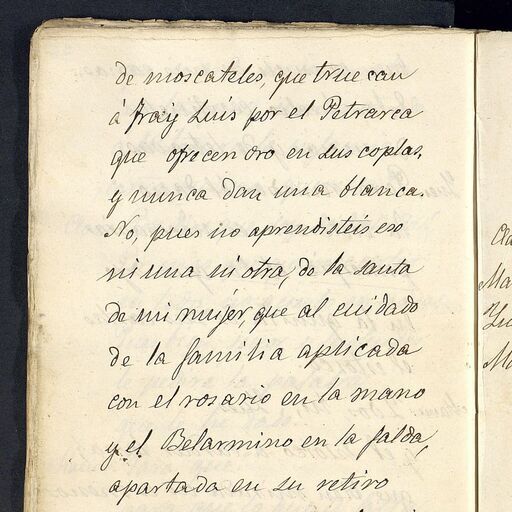 de moscateles, que truecan
á Fray Luis por el Petrarca
que ofrecen oro en sus coplas,
y nunca dan una blanca.
No, pues no aprendisteis eso
ni una ni otra, de la santa
de mi mujer, que al cuidado
de la familia aplicada
con el rosario en la mano
y el Belarmino en la falda,
apartada en su retiro